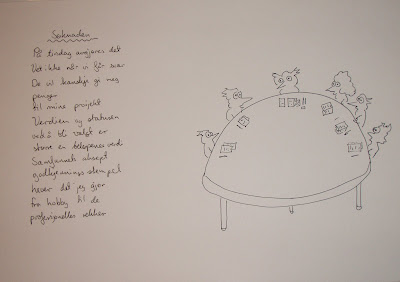 Søknaden
På tirsdag avgjøres det
Vet ikke når vi får svar
De vil kanskje gi meg
penger
til mine prosjekt
Verdien og statusen
ved å bli valgt er
større en beløpenes verdi
Samfunnets aksept
godkjennings stempel
hever det jeg gjør
fra hobby til de
profesjonelles rekker